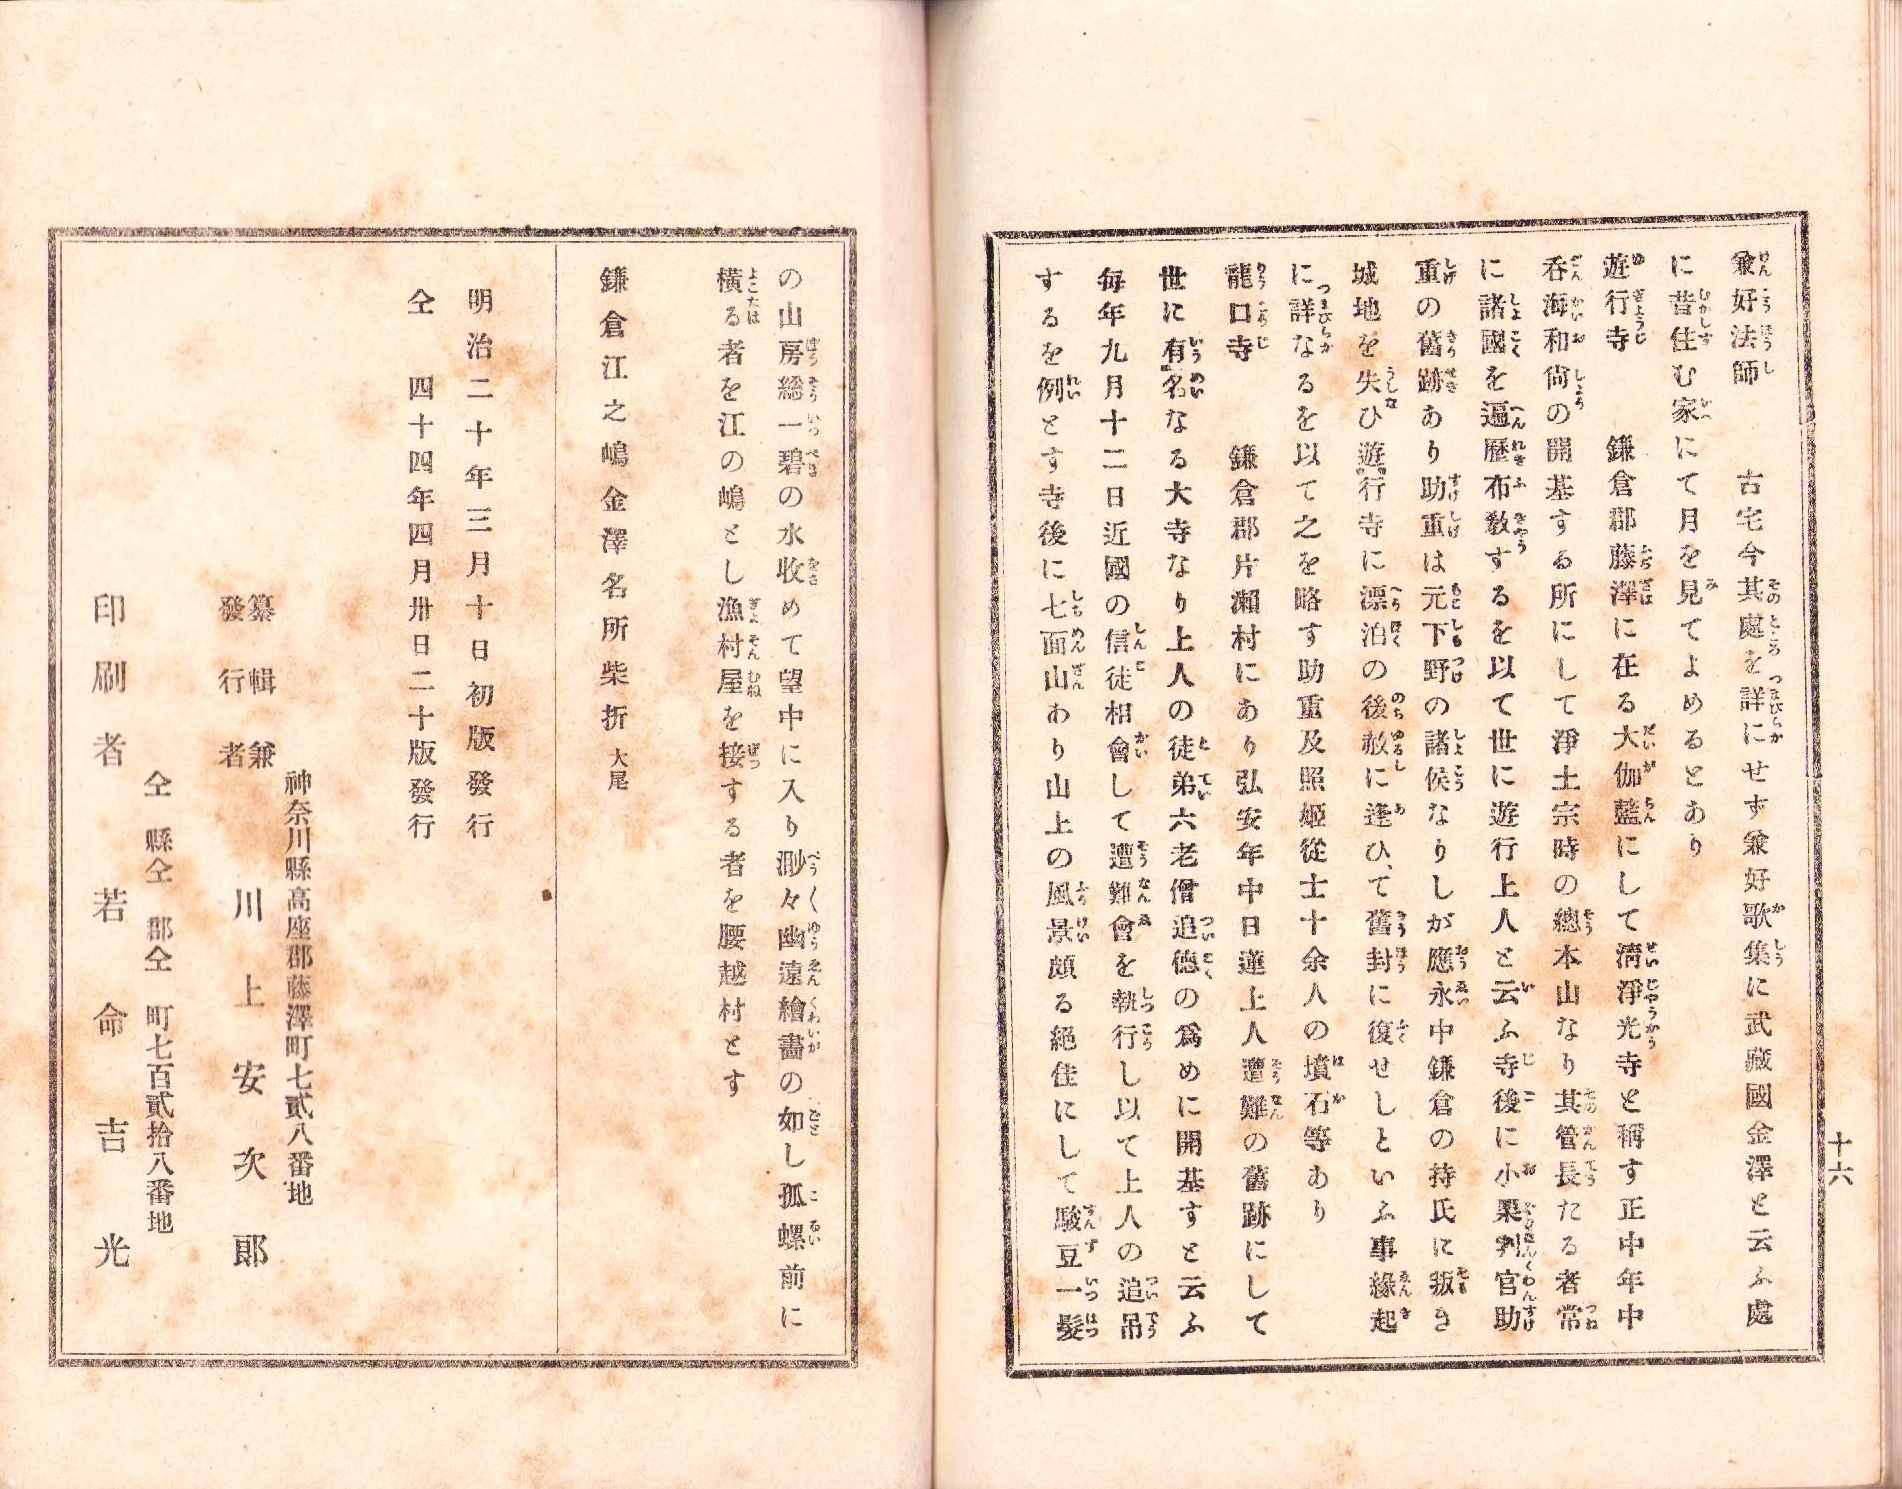 兼好法師　　古宅今其處を詳にせず兼好歌集に武藏國金澤と云ふ處
に昔住む家にて月を見てよめるとあり
遊行寺　　鎌倉郡藤澤に在る大伽藍にして淸淨光寺と稱す正中年中
呑海和尙の開基する所にして淨土宗時の總本山なり其管長たる者常
に諸國を遍歷布敎するを以て世に遊行上人と云ふ寺後に小栗判官助
重の舊跡あり助重は元下野の諸侯なりしが應永中鎌倉の持氏に叛き
城地を失ひ遊行寺に漂泊の後赦に逢ひて舊封に復せしといふ事緣起
に詳なるを以て之を略す助重及照姬從士十余人の墳石等あり
龍口寺　　鎌倉郡片瀨村にあり弘安年中日蓮上人遭難の舊跡にして
世に有名なる大寺なり上人の徒弟六老僧追德の爲めに開基すと云ふ
每年九月十二日近國の信徒相會して遭難會を執行し以て上人の追吊
するを例とす寺後に七面山あり山上の風景頗る絕佳にして駿豆一髮
十六
の山房総一碧の水收めて望中に入り渺々幽遠繪畵の如し孤螺前に
橫る者を江の嶋とし漁村屋を接する者を腰越村とす
鎌倉江之嶋金澤名所柴折 大尾
明治二十年三月十日初版發行
仝　四十四年四月卅日二十版發行
神奈川縣高座郡藤澤町七貳八番地
纂輯兼
發行者　川上安次郞
仝縣仝郡仝町七百貳拾八番地
印刷者　若命吉光